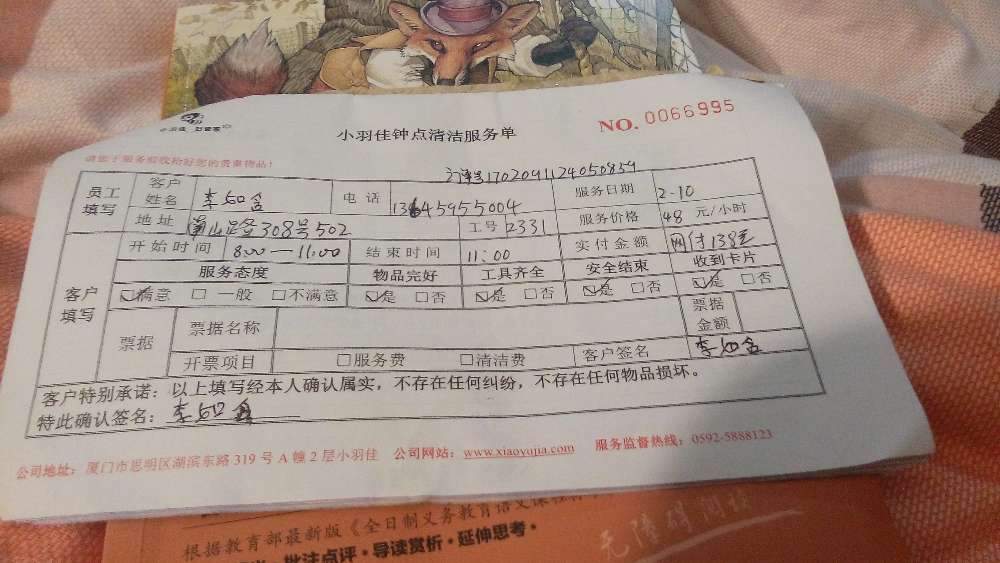 小羽佳钟点清洁服务单
NO. 0066995
请您于服务前收拾好您的贵重物品！
170209112405083
员工填写 客户姓名 李如含 电话 服务日期 2-10
地址 308号502 工号 2331 服务价格 48 元/小时
客户填写 开始时间 8:00—11:00 结束时间 11:00 实付金额 网付138元
服务态度 物品完好 工具齐全 安全结束 收到卡片
☑满意 □一般 □不满意 ☑是 □否 ☑是 □否 ☑是 □否 ☑是 □否
票据 票据名称 票据金额
开票项目 □服务费 □清洁费 客户签名 李如含
客户特别承诺：以上填写经本人确认属实，不存在任何纠纷，不存在任何物品损坏。
特此确认签名：李如含
公司地址：厦门市思明区湖滨东路319号A幢2层小羽佳 公司网站：www.xiaoyujia.com 服务监督热线：0592-5888123
根据教育部最新版《全日制义务教育语文课程标准
批注点评·导读赏析·延伸思考·
无障碍阅读